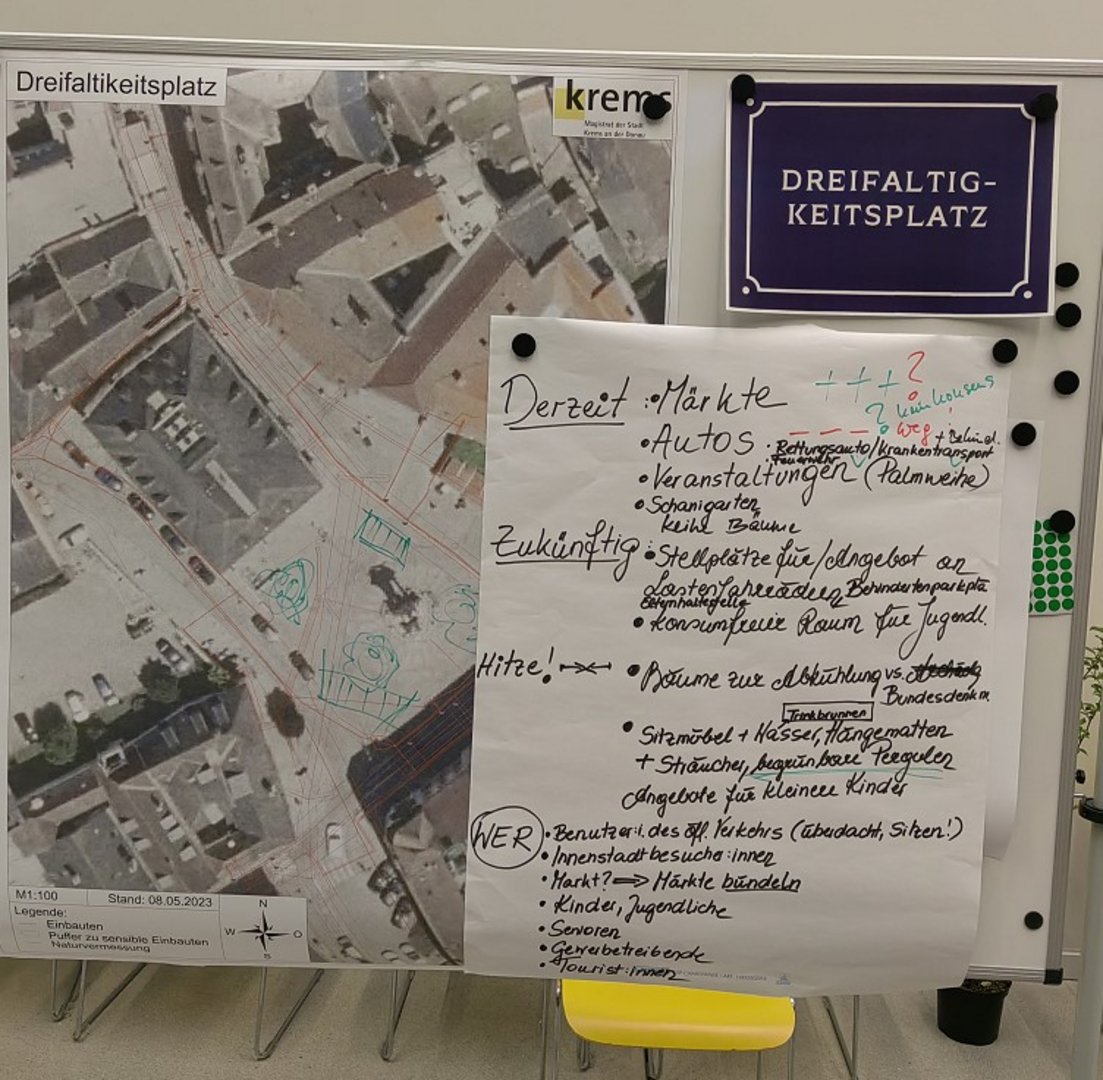 Dreifaltikeitsplatz
krems
Magistrat der Stadt
Krems an der Donau
DREIFALTIG-
KEITSPLATZ
M1:100
Stand: 08.05.2023
Legende:
Einbauten
Puffer zu sensible Einbauten
Naturvermessung
N
W O
S
+ + + ?
Derzeit: • Märkte
? kein konsens
– – – weg!
• Autos • Rettungsauto/Krankentransport + Behind.
• Feuerwehr
• Veranstaltungen (Palmweihe)
• Schanigarten
keine Bäume
Zukünftig: • Stellplätze für/Angebot an
Lastenfahrrädern Behindertenparkplä
• Konsumfreier Raum für Jugendl.
Hitze! • Bäume zur Abkühlung vs.
Bundesdenkm.
Trinkbrunnen
• Sitzmöbel + Wasser, Hängematten
+ Sträucher, begrünbare Pergolen
Angebote für kleinere Kinder
WER • Benutzer:i. des öff. Verkehrs (überdacht, Sitzen!)
• Innenstadtbesucher:innen
• Markt? ⇒ Märkte bündeln
• Kinder, Jugendliche
• Senioren
• Gewerbetreibende
• Tourist:innen